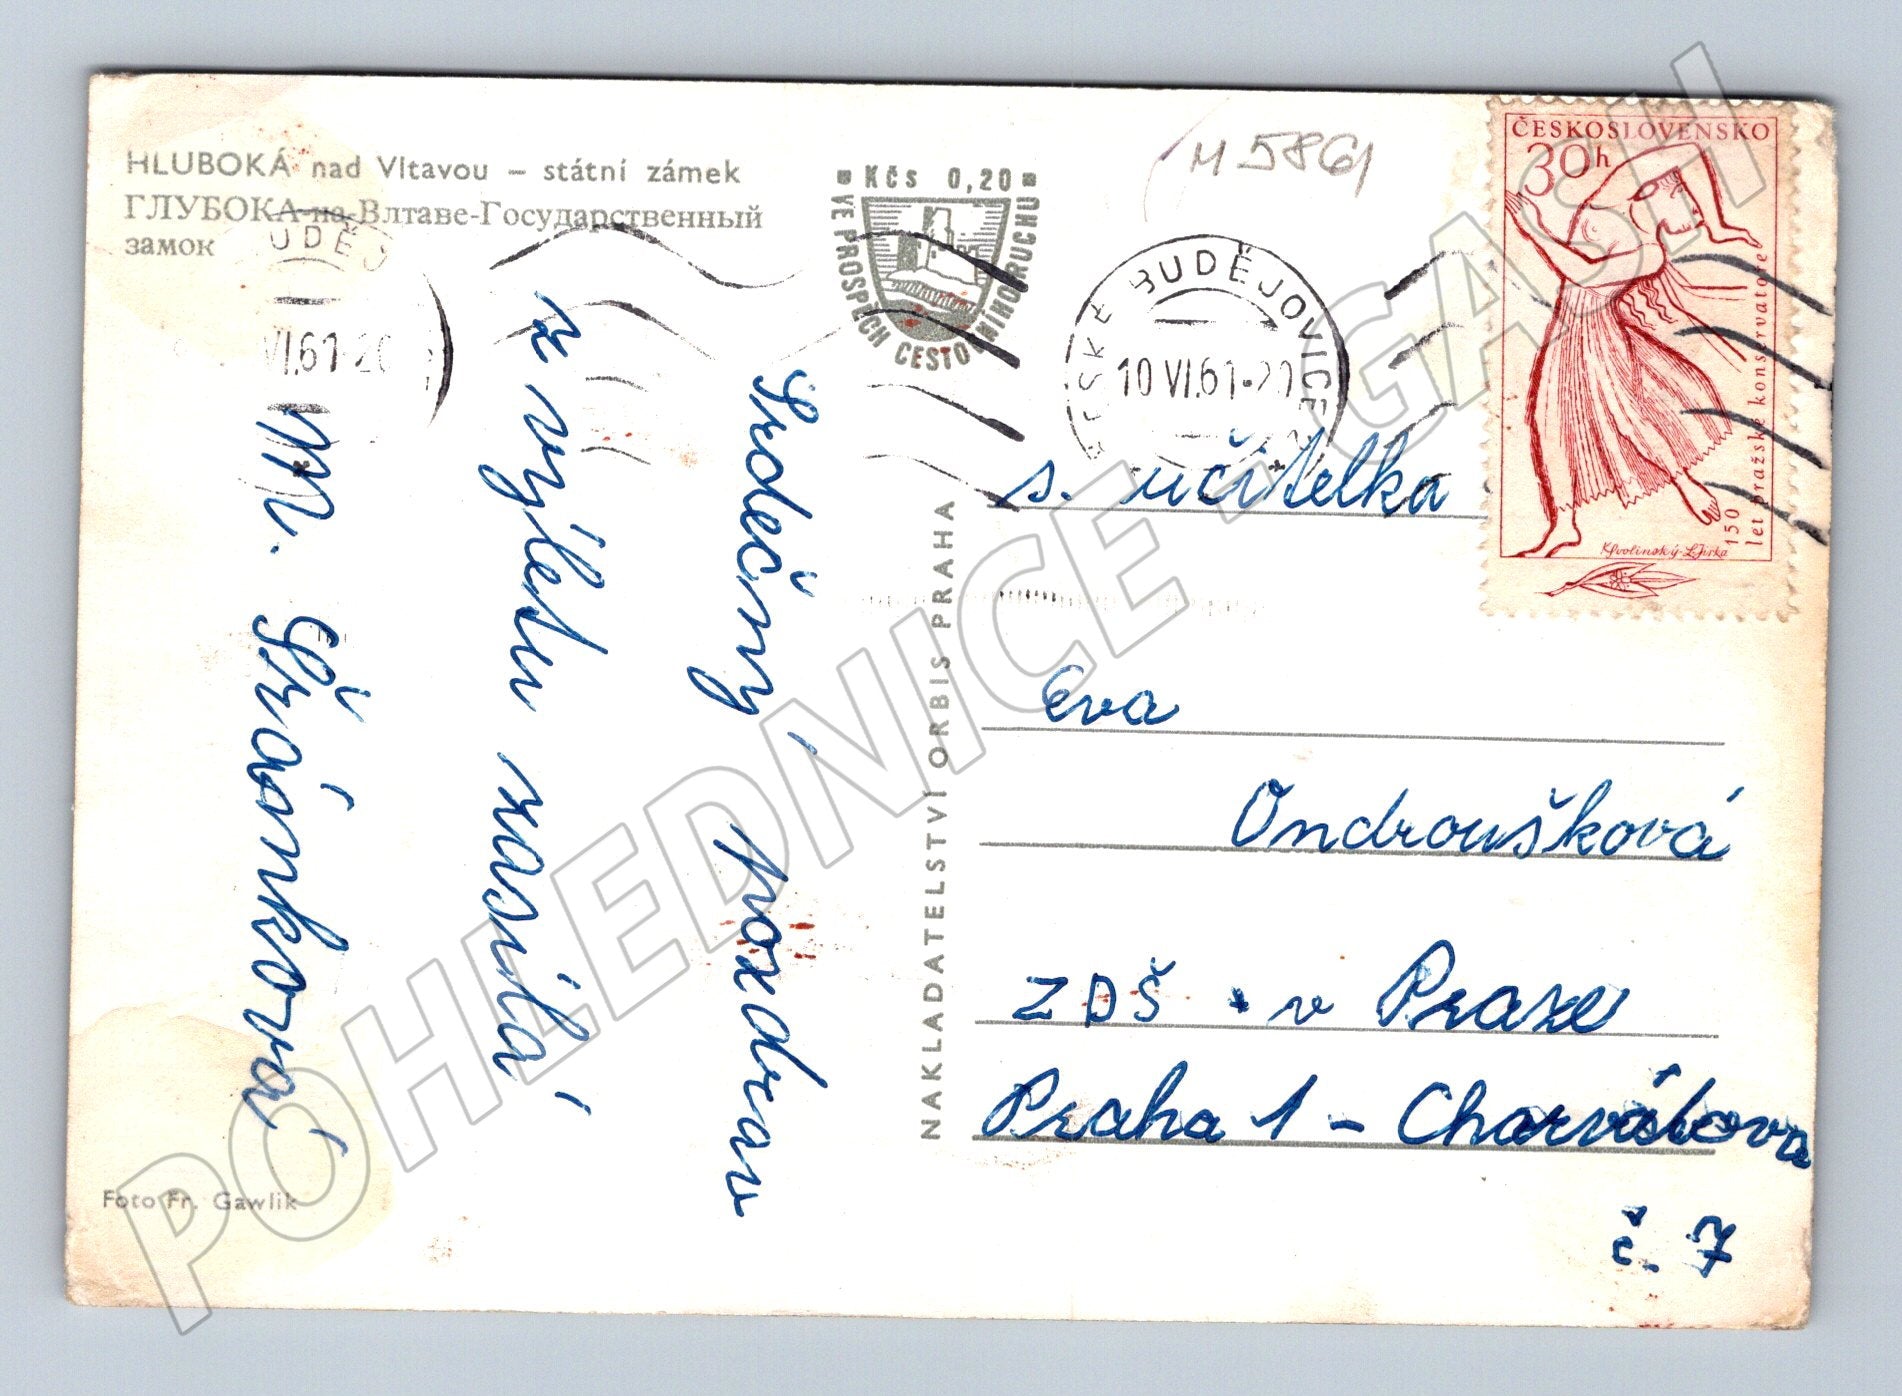 HLUBOKÁ nad Vltavou – státní zámek
ГЛУБОКА-на-Влтаве-Государственный
замок
Kčs 0,20
VE PROSPĚCH CESTOVNÍHO RUCHU
M 5861
ČESKÉ BUDĚJOVICE 2
10 VI.61-20
VI.61-20
ČESKOSLOVENSKO
30h
150
let pražské konservatoře
K.Svolinský-L.Jirka
Srdečný pozdrav
z výletu zasílá
M. Šrámková
NAKLADATELSTVÍ ORBIS PRAHA
s. učitelka
Eva
Ondroušková
ZDŠ v Praze
Praha 1 – Charvátova
č. 7
Foto Fr. Gawlik
POHLEDNICE - GASH